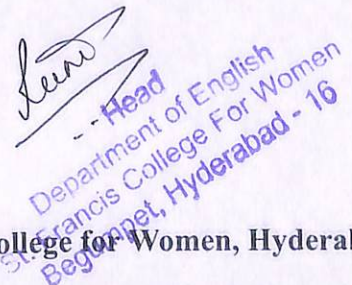 Head
Department of English
St. Francis College For Women
Begumpet, Hyderabad - 16
ollege for Women, Hyderal